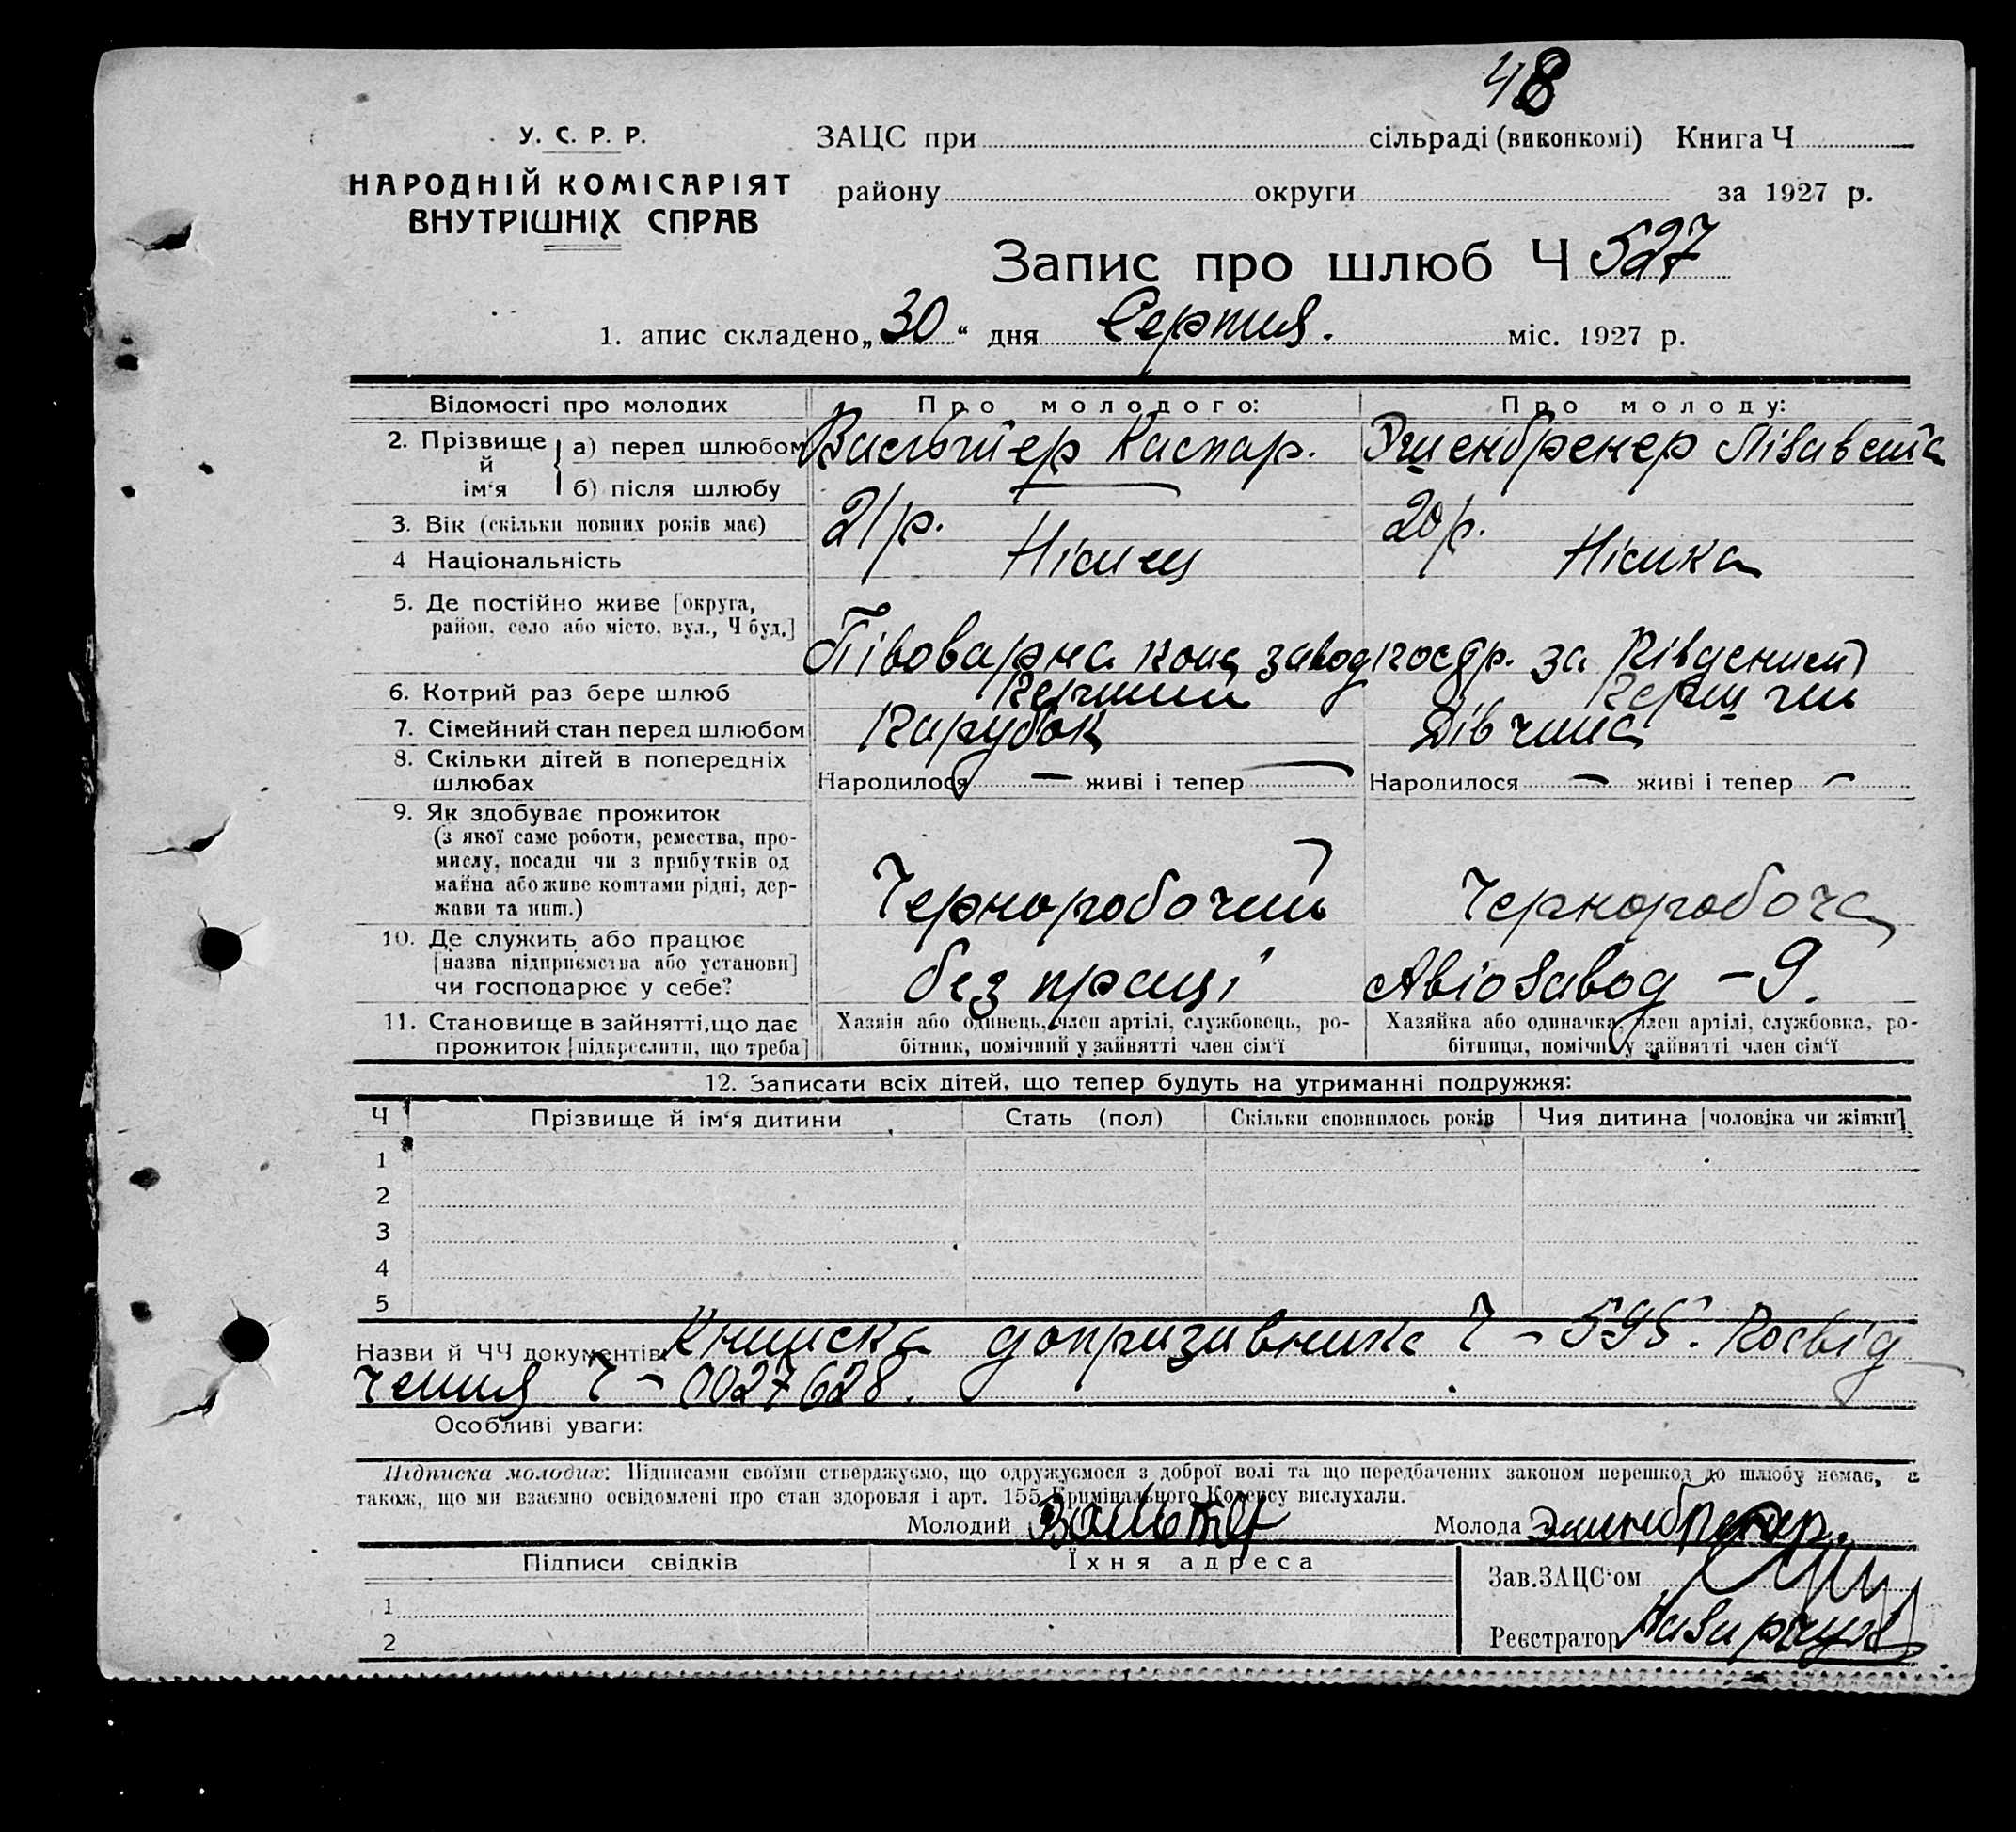 48
У. С. Р. Р.
НАРОДНІЙ КОМІСАРІЯТ
ВНУТРІШНІХ СПРАВ
ЗАЦС при сільраді (виконкомі) Книга Ч
району округи за 1927 р.
Запис про шлюб Ч 527
1. апис складено „30“ дня Серпня. міс. 1927 р.
Відомості про молодих Про молодого: Про молоду:
2. Прізвище й ім‘я а) перед шлюбом Вальтер Каспар. Лізавета
б) після шлюбу
3. Вік (скільки повних років має) 21 р. 20 р.
4 Національність Німец Німка
5. Де постійно живе [округа,
район, село або місто, вул., Ч буд.]
Півоварна завод за
6. Котрий раз бере шлюб Перший Перший
7. Сімейний стан перед шлюбом Парубок Дівчина
8. Скільки дітей в попередніх
шлюбах Народилося — живі і тепер — Народилося — живі і тепер —
9. Як здобуває прожиток
(з якої саме роботи, ремества, про-
мислу, посади чи з прибутків од
майна або живе коштами рідні, дер-
жави та инш.) Черноробочий Чернороboча
10. Де служить або працює
[назва підприємства або установи]
чи господарює у себе? без праці Авіозавод – 9.
11. Становище в зайнятті, що дає
прожиток [підкреслити, що треба]
Хазяїн або одинець, член артілі, службовець, ро-
бітник, помічний у зайнятті член сім‘ї
Хазяйка або одиначка, член артілі, службовка, ро-
бітниця, помічн. у зайнятті член сім‘ї
12. Записати всіх дітей, що тепер будуть на утриманні подружжя:
Ч Прізвище й ім‘я дитини Стать (пол) Скільки сповнилось років Чия дитина [чоловіка чи жінки]
1
2
3
4
5
Назви й ЧЧ документів: Книжка допризивника Ч – 595. Посвід
чення Ч – 0027628.
Особливі уваги:
Підписка молодих: Підписами своїми стверджуємо, що одружуємося з доброї волі та що передбачених законом перешкод до шлюбу немає, а
також, що ми взаємно освідомлені про стан здоровля і арт. 155 Кримінального Кодексу вислухали.
Молодий Вальтер Молода
Підписи свідків Їхня адреса
Зав.ЗАЦС‘ом
1
Реєстратор
2